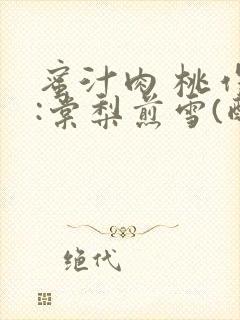 蜜汁肉桃作
:棠梨煎雪(
绝代